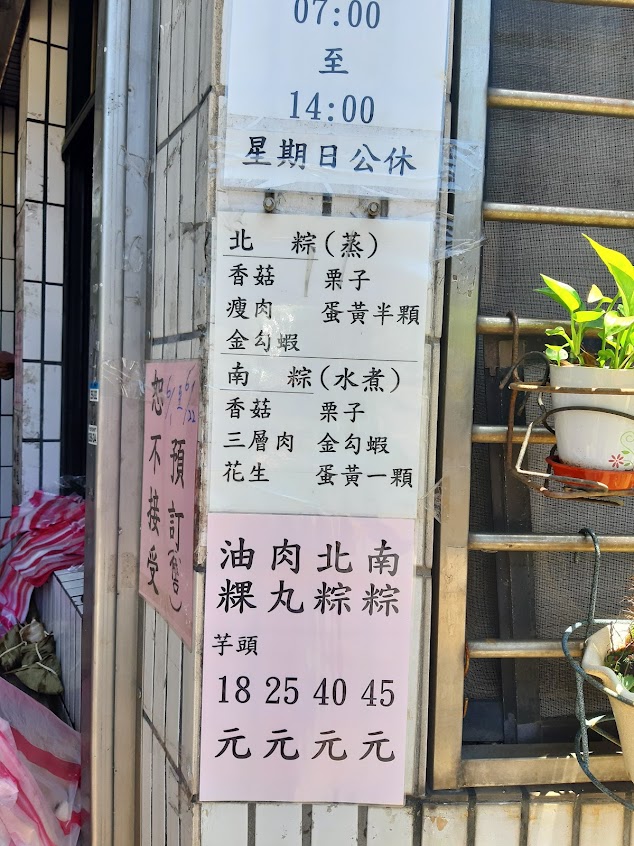 07:00
至
14:00
星期日公休
北 粽(蒸)
香菇 栗子
瘦肉 蛋黃半顆
金勾蝦
南 粽(水煮)
香菇 栗子
三層肉 金勾蝦
花生 蛋黃一顆
恕不接受
預訂(售)
南粽 45元
北粽 40元
肉丸 25元
油粿 芋頭 18元